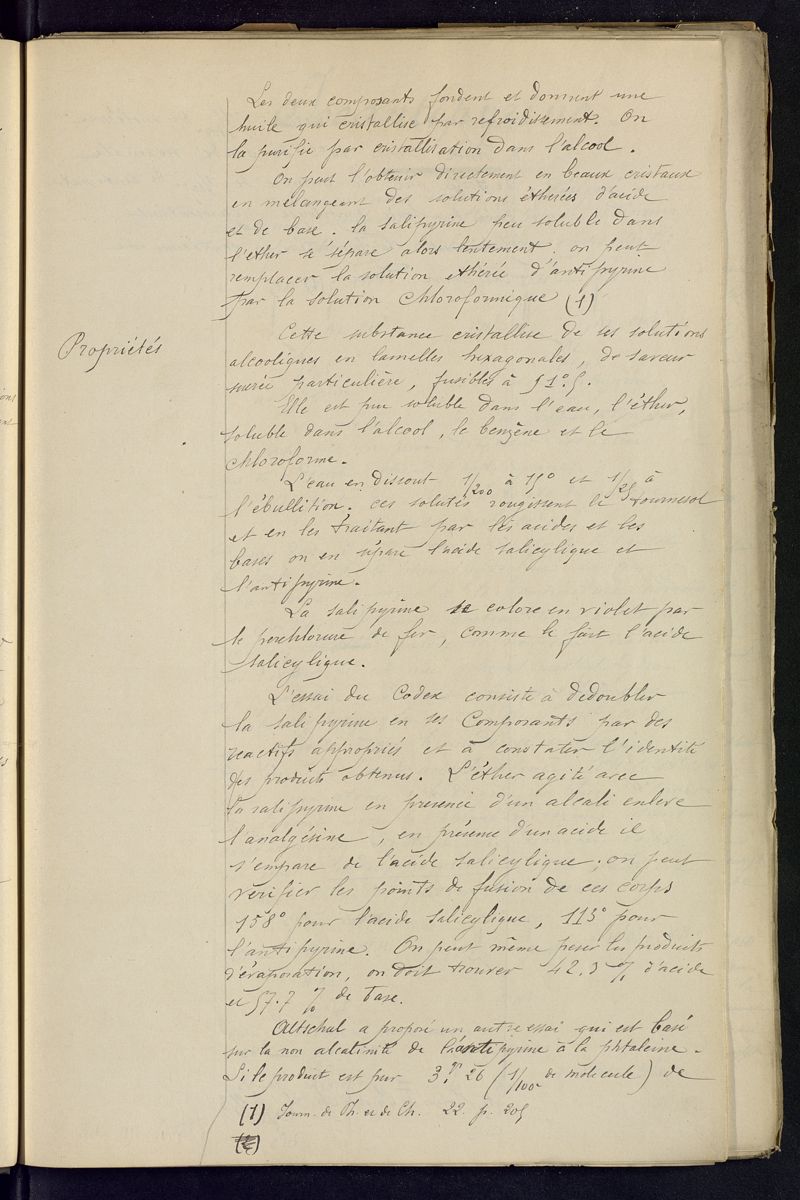 Les deux composants fondent et donnent une
huile qui cristallise par refroidissement. On
la purifie par cristallisation dans l'alcool.
On peut l'obtenir directement en beaux cristaux
en mélangeant des solutions éthérées d'acide
et de base. la salipyrine peu soluble dans
l'ether se sépare alors lentement. on peut
remplacer la solution ethérée d'antipyrine
par la solution chloroformique (1)
Propriétés
Cette substance cristallise de ses solutions
alcooliques en lamelles hexagonales, de saveur
sucrée particulière, fusibles à 91°.5.
Elle est peu soluble dans l'eau, l'éther,
soluble dans l'alcool, le benzène et le
chloroforme.
L'eau en dissout 1/200 à 15° et 1/25 à
l'ébullition. ces solutés rougissent le tournesol
et en les traitant par les acides et les
bases on en sépare l'acide salicylique et
l'antipyrine.
La salipyrine se colore en violet par
le perchlorure de fer, comme le fait l'acide
salicylique.
L'essai du Codex consiste à dedoubler
la salipyrine en ses composants par des
reactifs appropriés et à constater l'identité
des produits obtenus. L'éther agité avec
la salipyrine en presence d'un alcali enleve
l'analgésine, en présence d'un acide il
s'empare de l'acide salicylique; on peut
verifier les points de fusion de ces corps
158° pour l'acide salicylique, 113° pour
l'antipyrine. On peut même peser les produits
d'évaporation, on doit trouver 42.3 % d'acide
et 57.7 % de base.
Altschul a proposé un autre essai qui est basé
sur la non alcalinité de l'antipyrine à la phtaleine.
Si le produit est pur 3gr.26 (1/100e de molecule) de
(1) Journ. de Ph. et de Ch. 22. p. 205